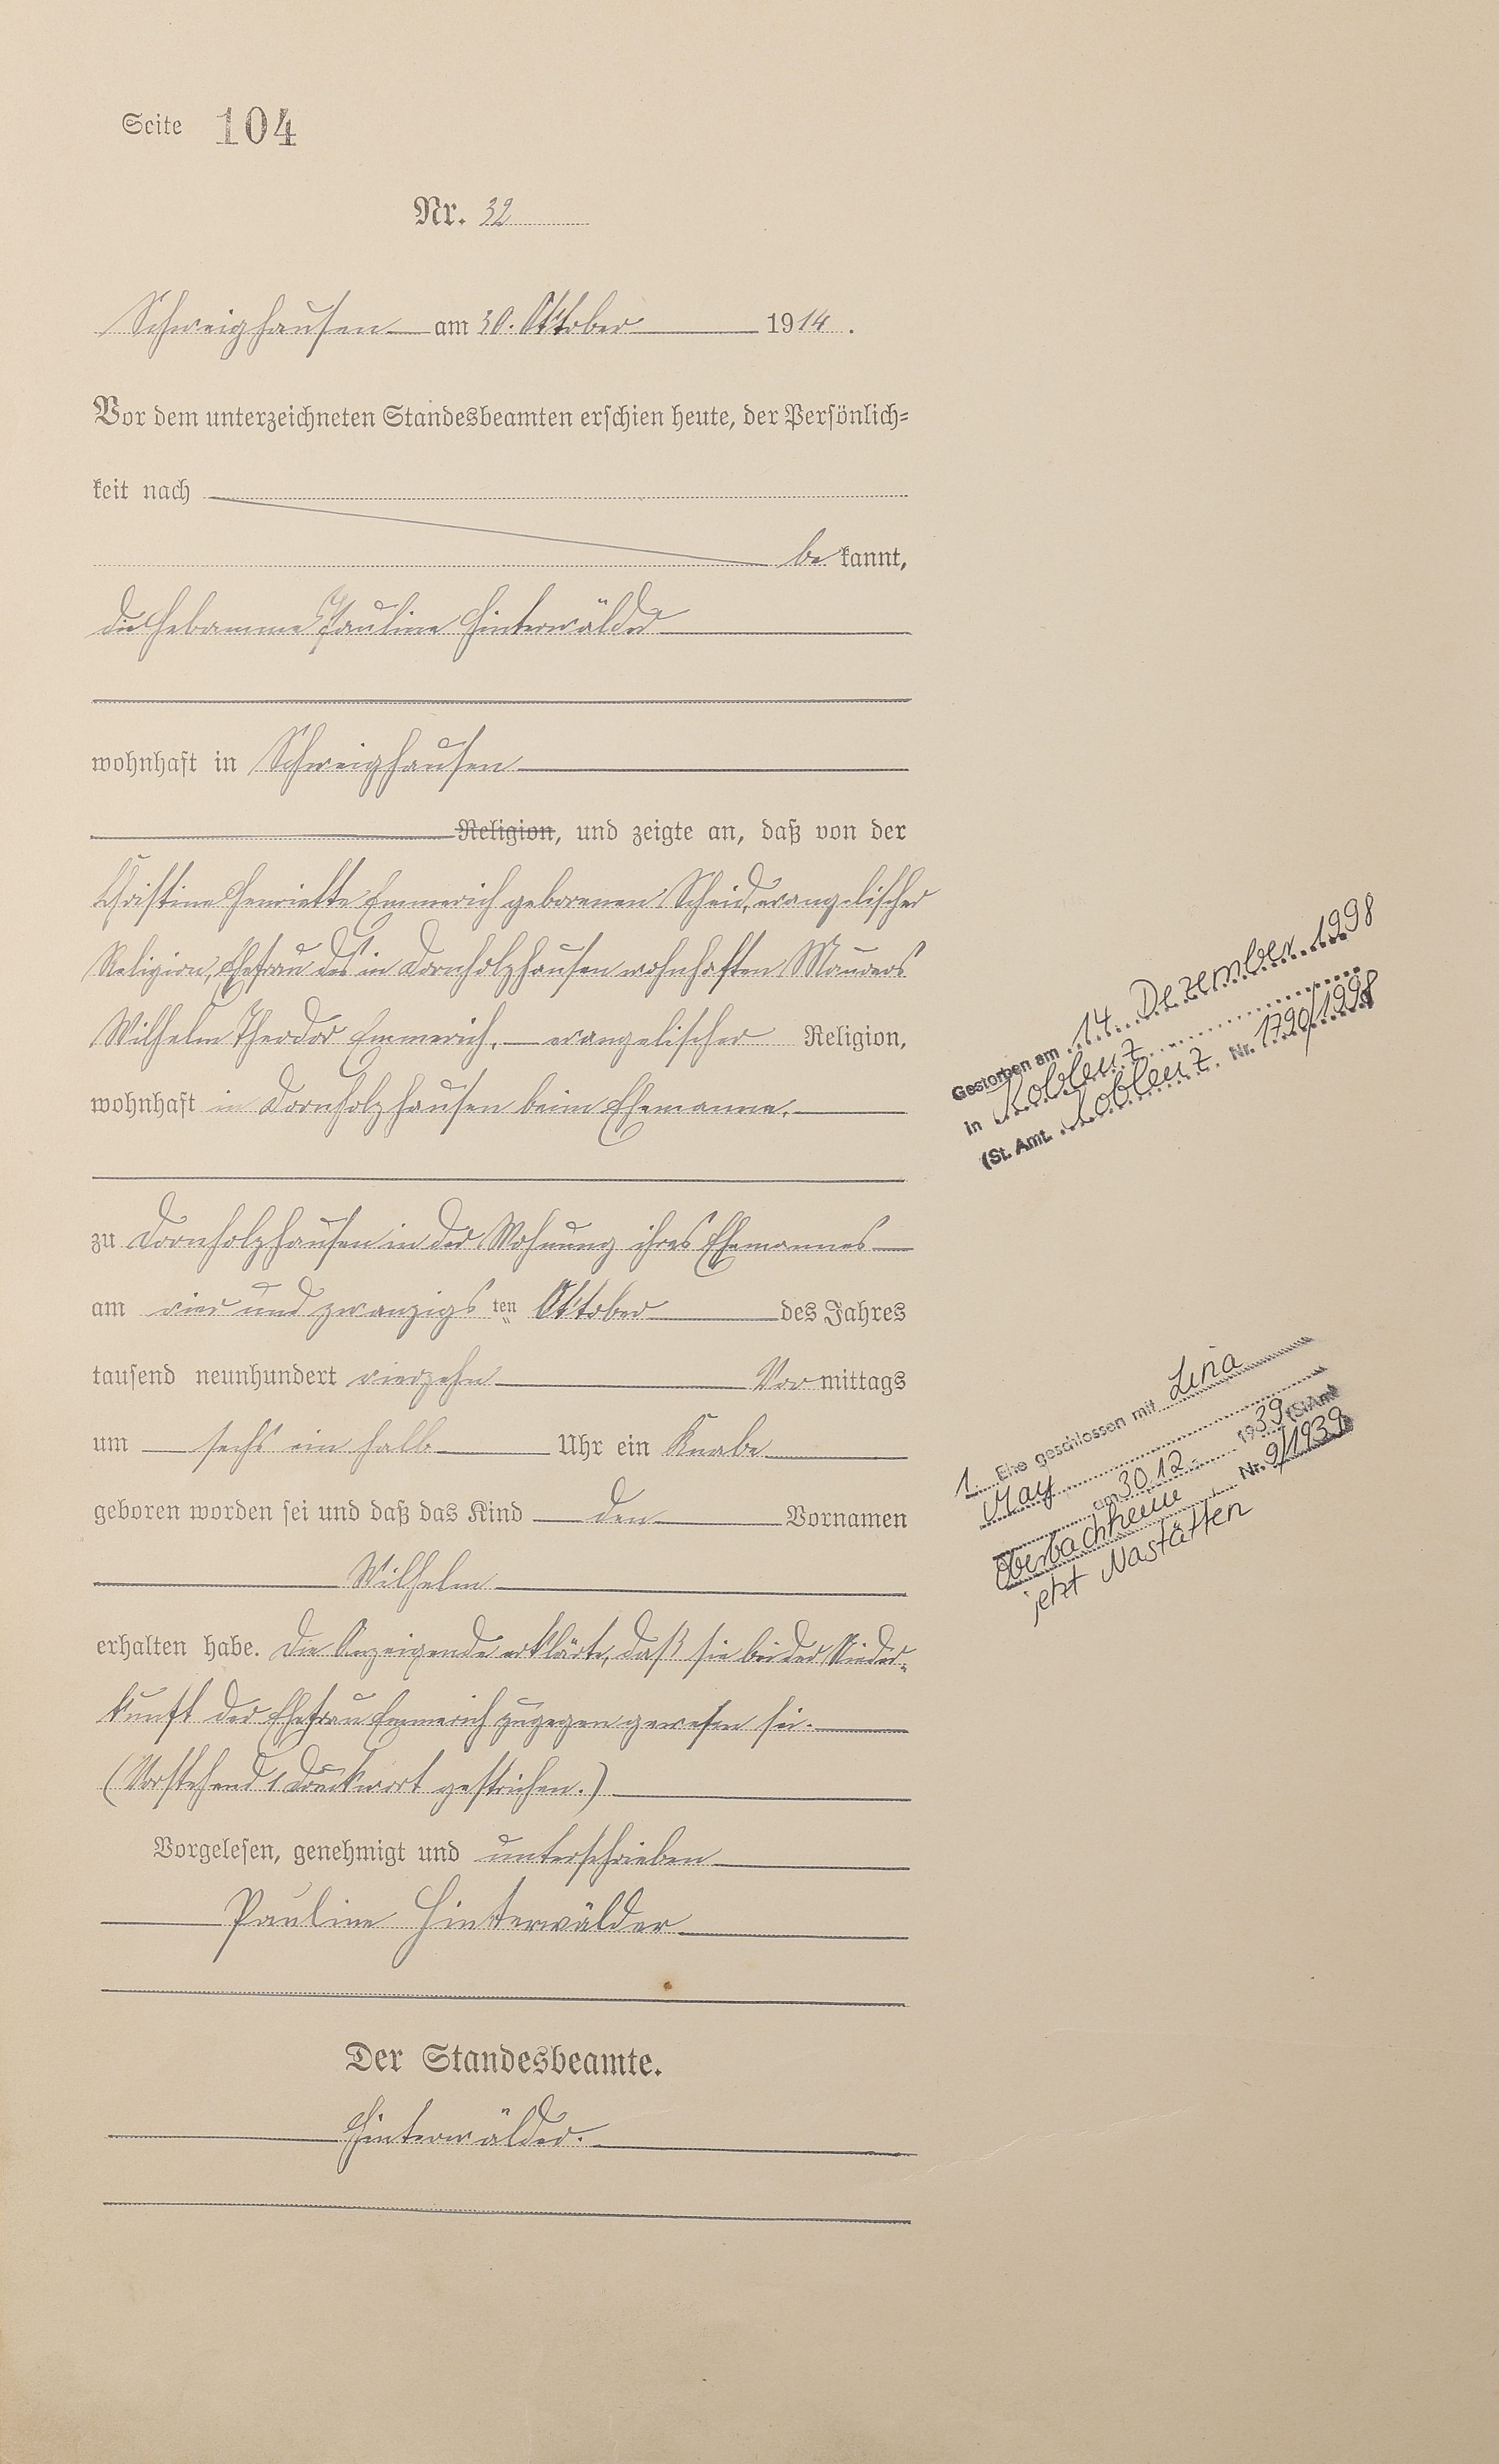 Seite 104
Nr. 32
Schweighausen am 30. Oktober 1914.
Vor dem unterzeichneten Standesbeamten erschien heute, der Persönlich-
keit nach
be kannt,
die Hebamme Pauline Hinterwälder
wohnhaft in Schweighausen
Religion, und zeigte an, daß von der
Christine Henriette Emmerich geborenen Scheid, evangelischer
Religion, Ehefrau des in Dornholzhausen wohnhaften Maurers
Wilhelm Theodor Emmerich, evangelischer Religion,
wohnhaft in Dornholzhausen beim Ehemanne,
zu Dornholzhausen in der Wohnung ihres Ehemannes
am vier und zwanzigs ten Oktober des Jahres
tausend neunhundert vierzehn Vor mittags
um sechs ein halb Uhr ein Knabe
geboren worden sei und daß das Kind den Vornamen
Wilhelm
erhalten habe. Die Anzeigende erklärte, daß sie bei der Nieder-
kunft der Ehefrau Emmerich zugegen gewesen sei.
(Vorstehend 1 Druckwort gestrichen.)
Vorgelesen, genehmigt und unterschrieben
Pauline Hinterwälder
Der Standesbeamte.
Hinterwälder.
Gestorben am 14. Dezember 1998
in Koblenz
(St. Amt. Koblenz Nr. 1790/1998
1. Ehe geschlossen mit Lina
May
am 30.12. 1939 (St.Amt
Oberbachheim Nr. 9/1939
jetzt Nastätten